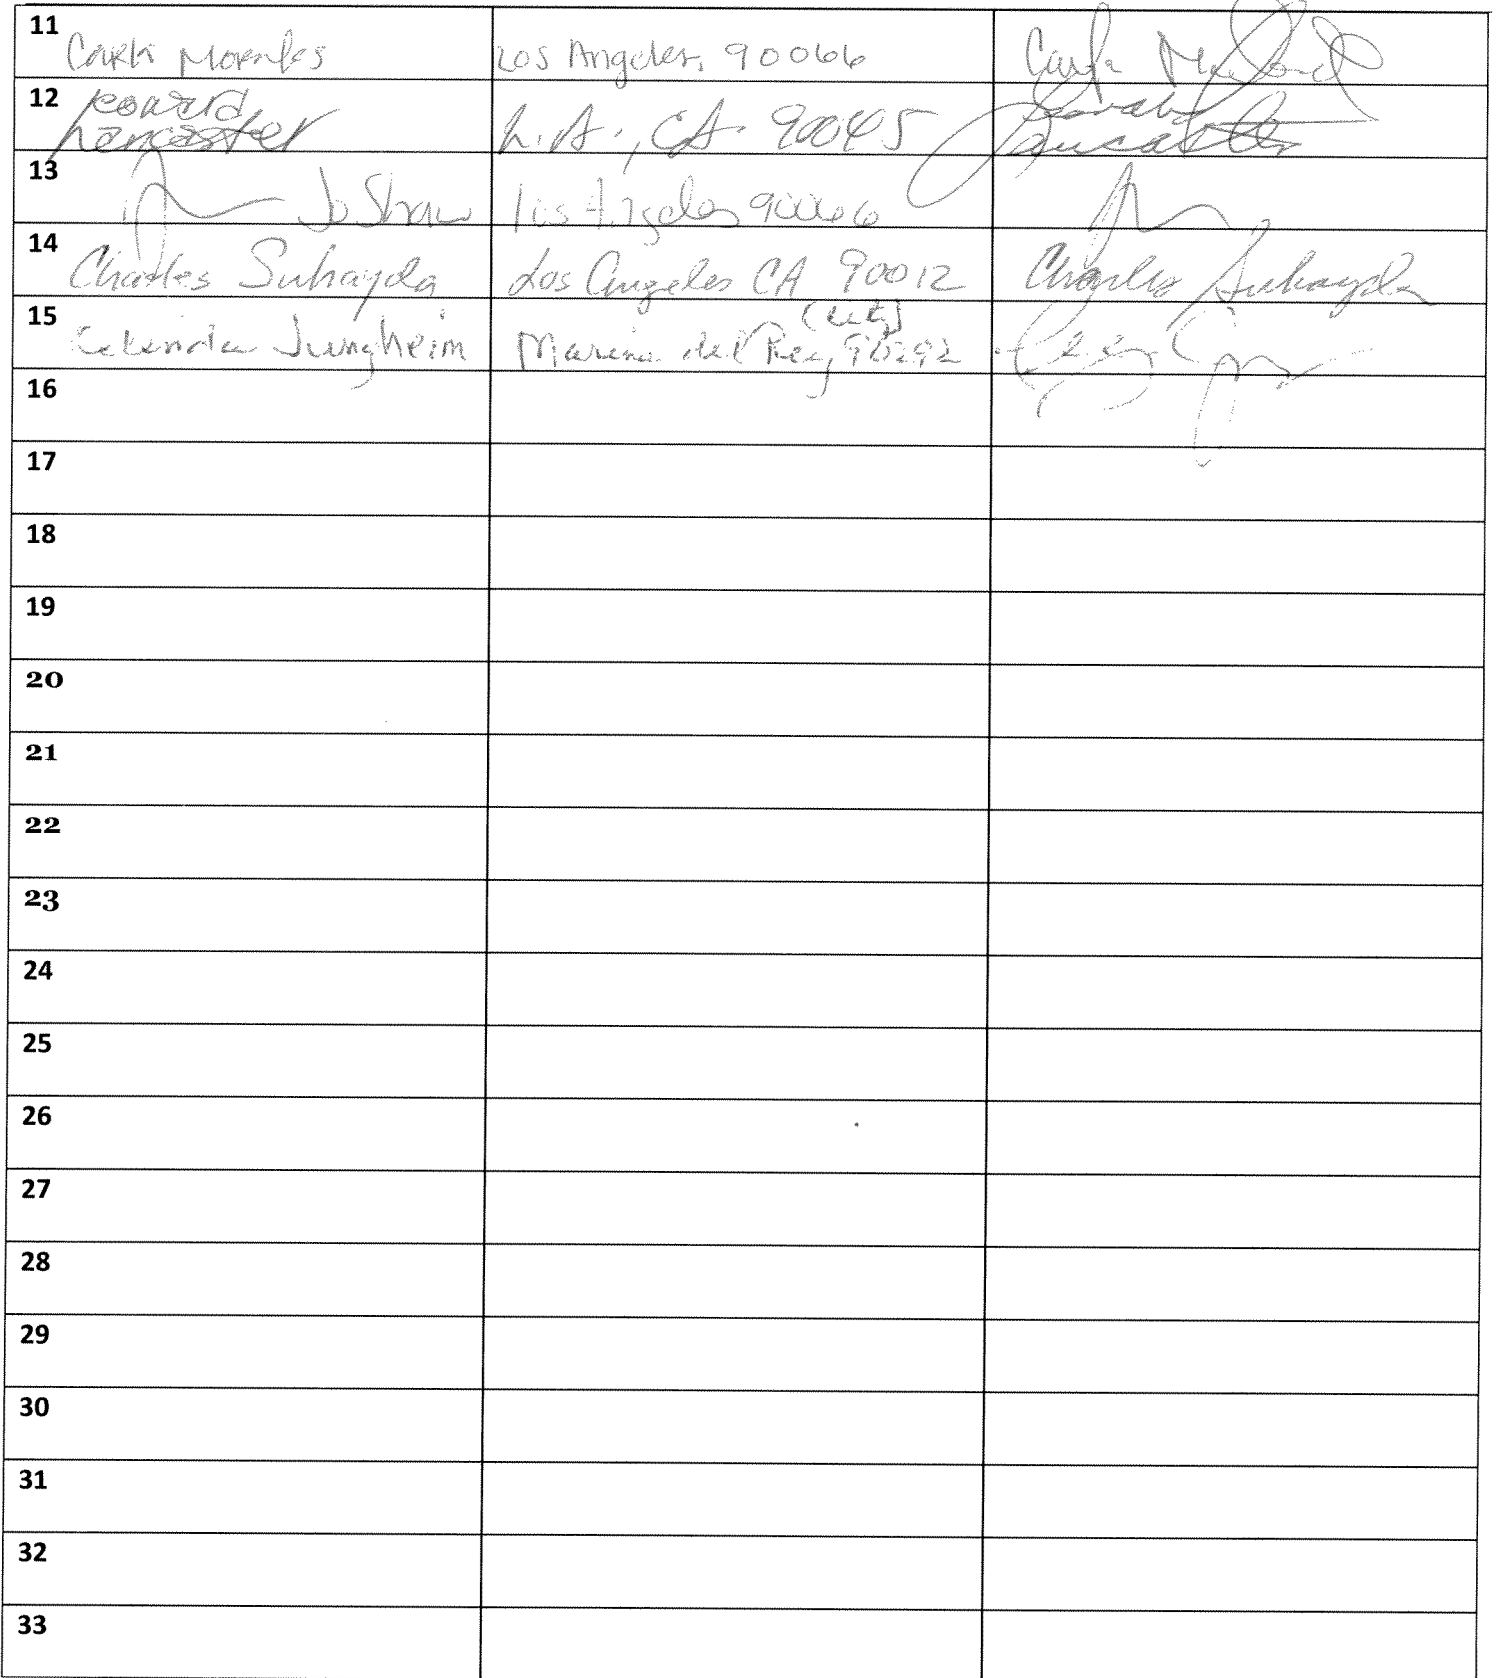 11 Carla Morales Los Angeles, 90066 Carla
12 Leonard
Lancaster L.A., CA 90045 Leonard
Lancaster
13 Jo Shaw Los Angeles 90066
14 Charles Suhayda Los Angeles CA 90012 Charles Suhayda
15 Celinda Jungheim Marina del Rey, 90292
(city)
16
17
18
19
20
21
22
23
24
25
26
27
28
29
30
31
32
33